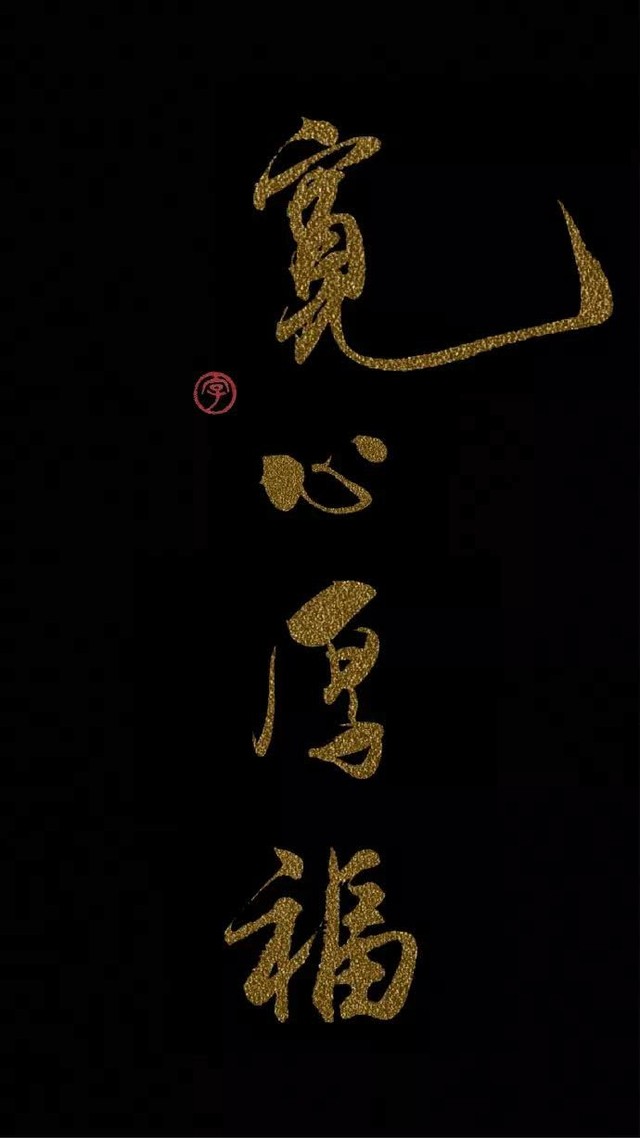 寬心厚福